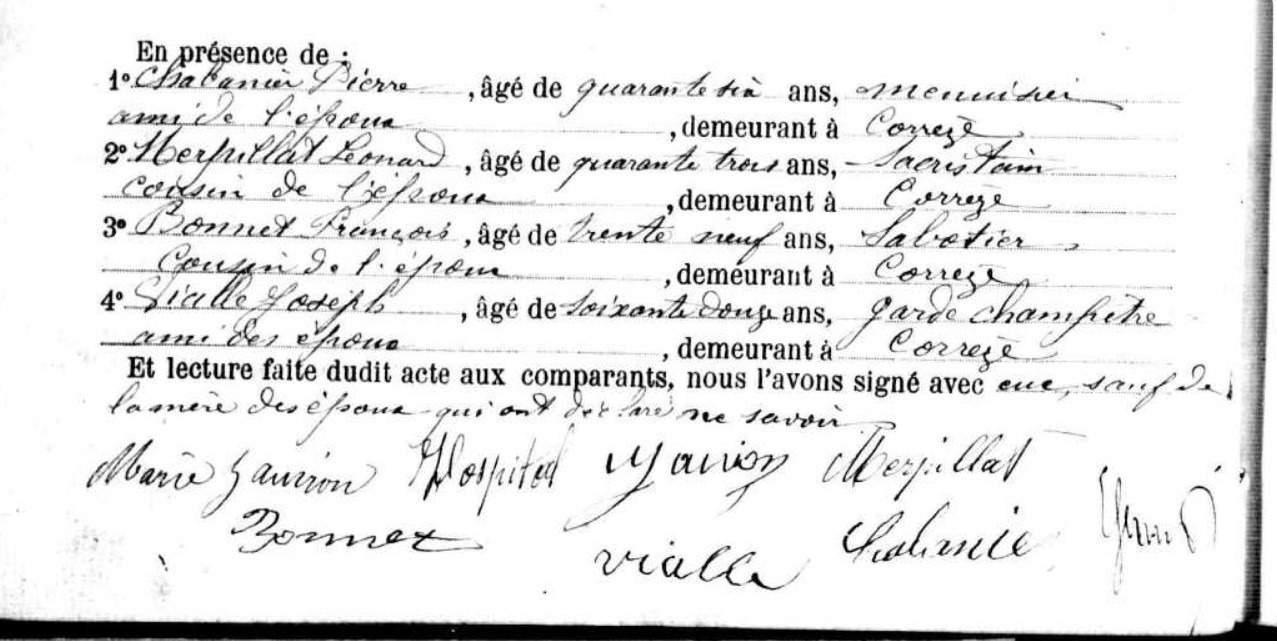 En présence de :
1° Chabanier Pierre, âgé de quarante six ans, menuisier
ami de l'époux, demeurant à Corrèze
2° Merpillat Leonard, âgé de quarante trois ans, Sacristain
cousin de l'époux, demeurant à Corrèze
3° Bonnet François, âgé de trente neuf ans, Sabotier
Cousin de l'époux, demeurant à Corrèze
4° Vialle Joseph, âgé de soixante douze ans, garde champêtre
ami des époux, demeurant à Corrèze
Et lecture faite dudit acte aux comparants, nous l'avons signé avec eux, sauf de
la mère des époux qui ont déclaré ne savoir
Marie Hospital Merpillat
Bonnet Vialle Chabanier